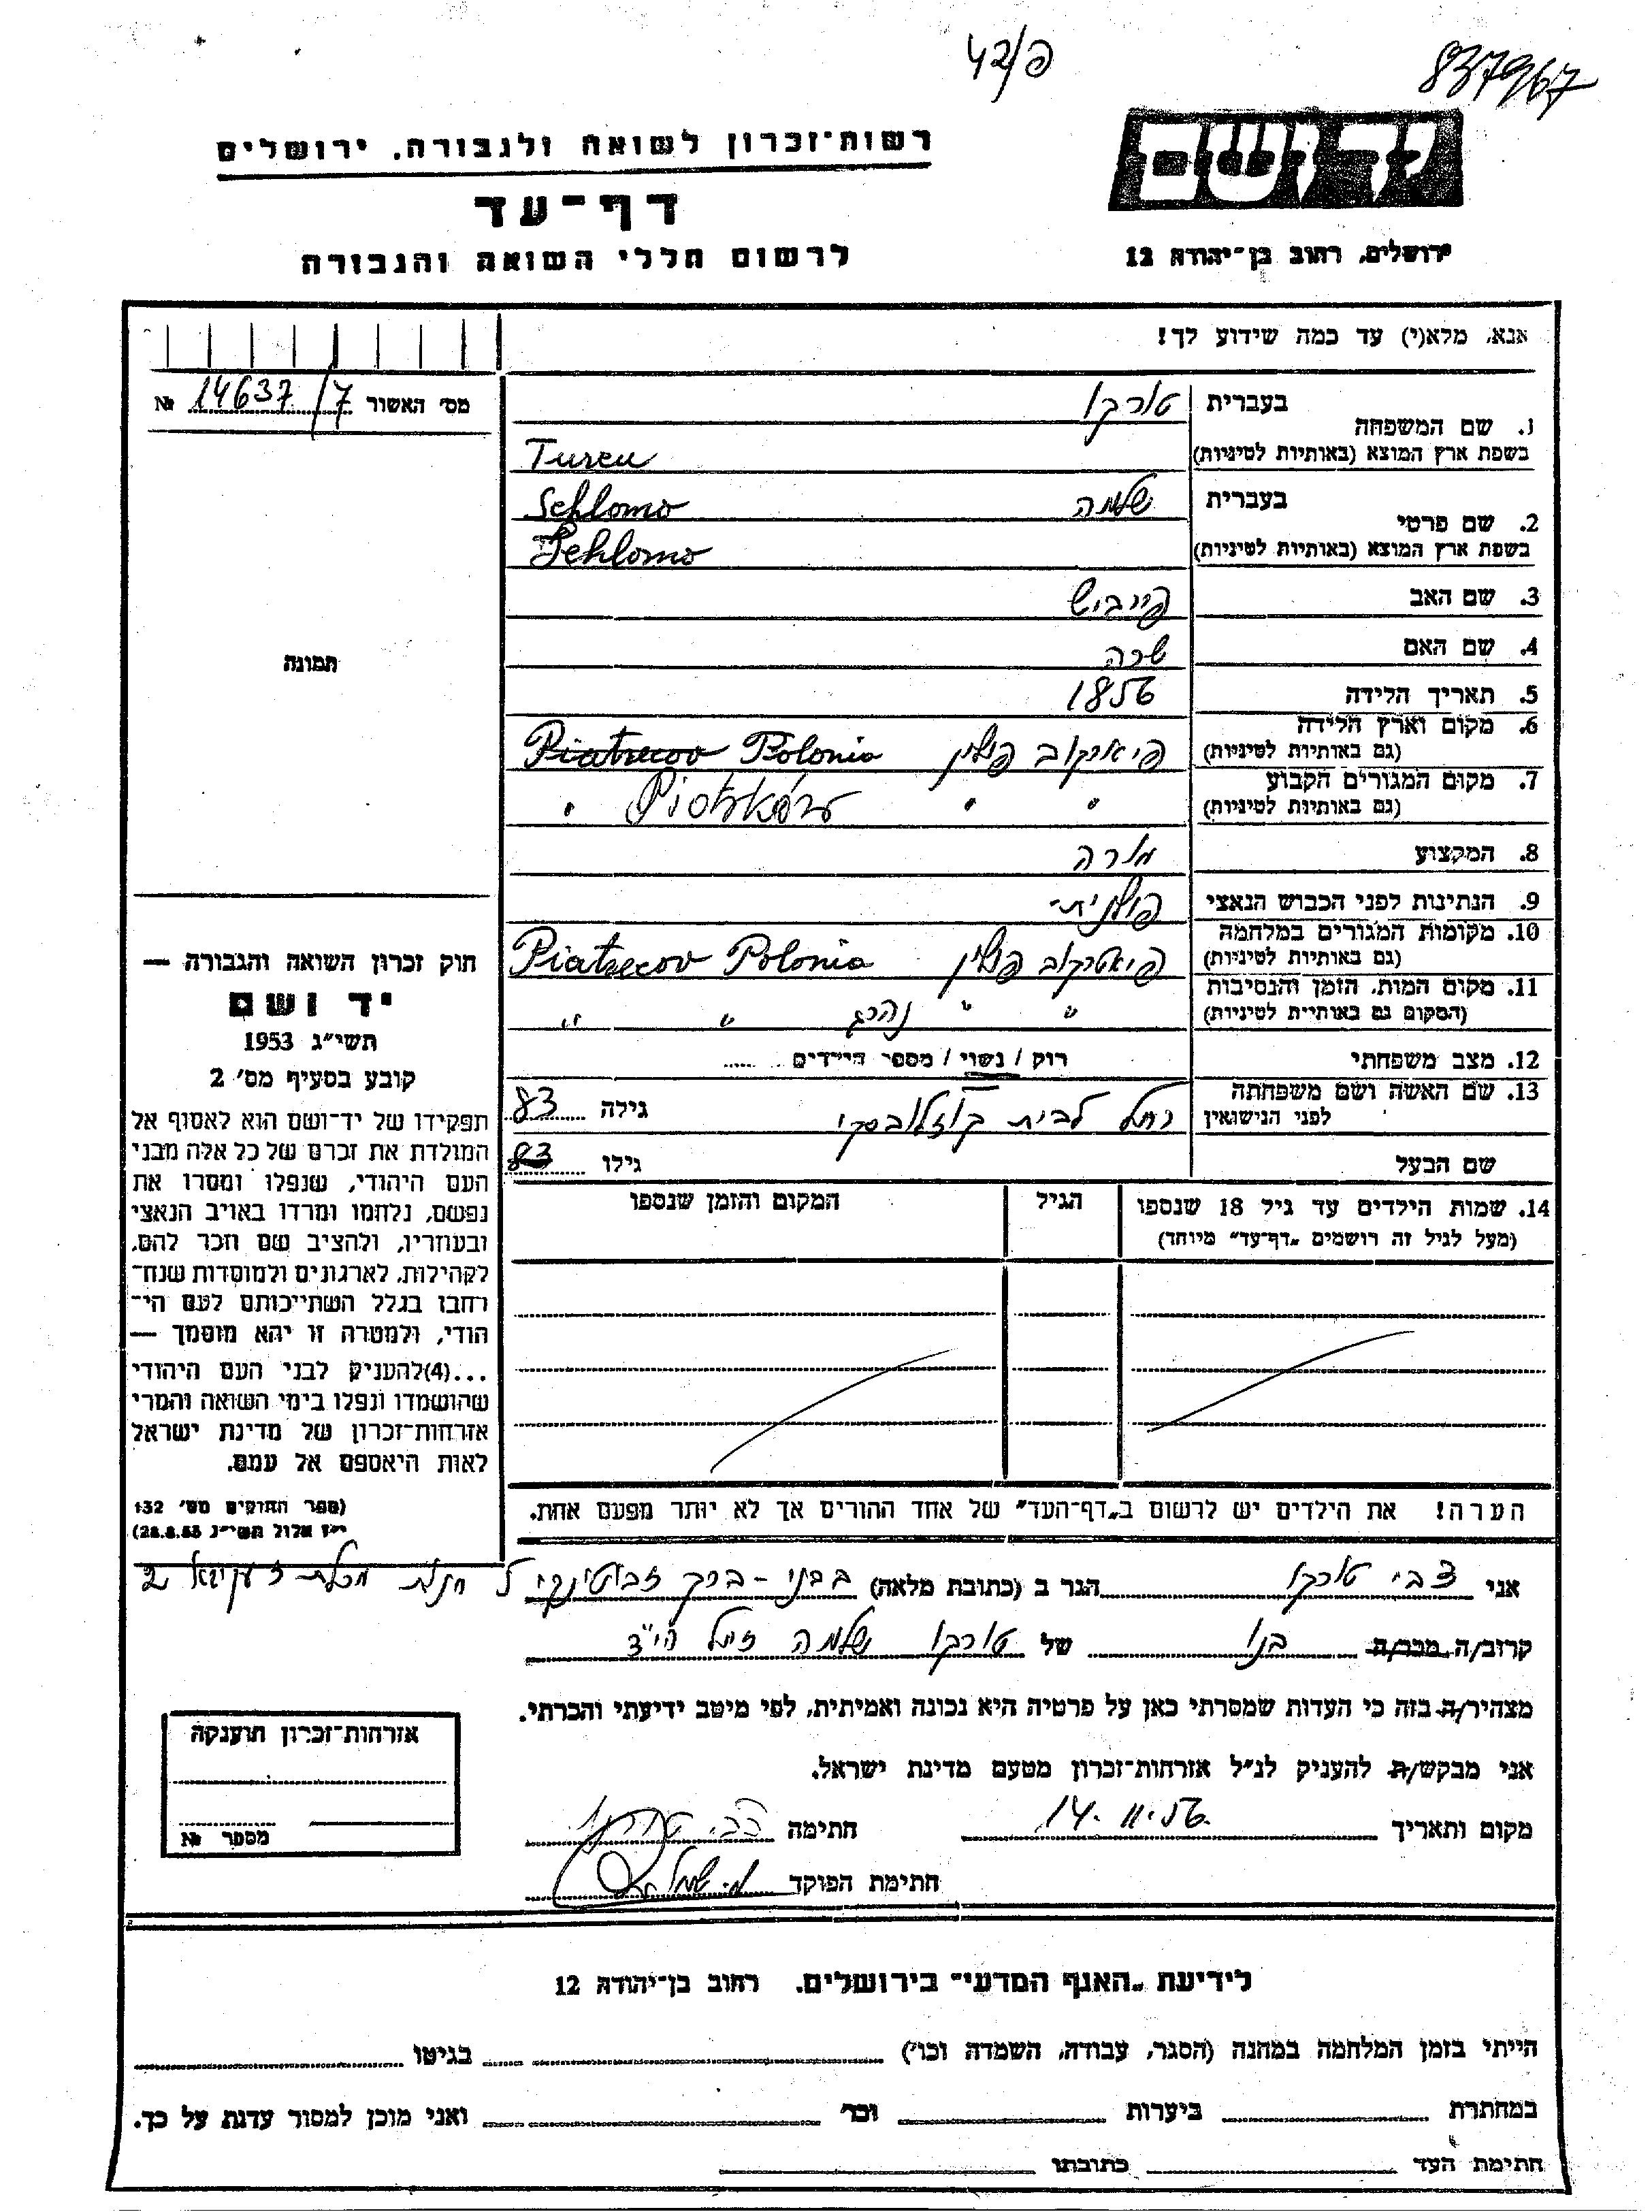 42/פ
837967
יד ושם
רשות־זכרון לשואה ולגבורה, ירושלים
דף־עד
לרשום חללי השואה והגבורה
ירושלים, רחוב בן־יהודה 12
אנא, מלא(י) עד כמה שידוע לך!
מס׳ האשור 14637/7 №
1. שם המשפחה
בעברית טורקו
בשפת ארץ המוצא (באותיות לטיניות) Turcu
2. שם פרטי
בעברית שלמה Schlomo
בשפת ארץ המוצא (באותיות לטיניות) Schlomo
3. שם האב פייביש
4. שם האם שרה
5. תאריך הלידה 1856
6. מקום וארץ הלידה
(גם באותיות לטיניות) פולין Piatrecov Polonia
7. מקום המגורים הקבוע
(גם באותיות לטיניות) " " Piotrków "
8. המקצוע מורה
9. הנתינות לפני הכבוש הנאצי פולנית
10. מקומות המגורים במלחמה
(גם באותיות לטיניות) פיאטרקוב פולין Piatrecov Polonia
11. מקום המות, הזמן והנסיבות
(המקום גם באותיות לטיניות) " " נהרג " "
12. מצב משפחתי רוק / נשוי / מספר הילדים ......
13. שם האשה ושם משפחתה
לפני הנישואין רחל לבית קוזלובסקי גילה 83
שם הבעל גילו 83
14. שמות הילדים עד גיל 18 שנספו
(מעל לגיל זה רושמים „דף־עד״ מיוחד)
הגיל
המקום והזמן שנספו
הערה! את הילדים יש לרשום ב„דף־העד״ של אחד ההורים אך לא יותר מפעם אחת.
תמונה
חוק זכרון השואה והגבורה —
יד ושם
תשי״ג 1953
קובע בסעיף מס׳ 2
תפקידו של יד־ושם הוא לאסוף אל
המולדת את זכרם של כל אלה מבני
העם היהודי, שנפלו ומסרו את
נפשם, נלחמו ומרדו באויב הנאצי
ובעוזריו, ולהציב שם וזכר להם,
לקהילות, לארגונים ולמוסדות שנח־
רחבו בגלל השתייכותם לעם הי־
הודי, ולמטרה זו יהא מוסמך —
...(4)להעניק לבני העם היהודי
שהושמדו ונפלו בימי השואה והמרי
אזרחות־זכרון של מדינת ישראל
לאות היאספם אל עמם.
(ספר החוקים מס׳ 132
י״ז אלול תשי״ג 28.8.53)
אני צבי טורקו הגר ב (כתובת מלאה) בבני-ברק זבוטינקי חנות מכלת
קרוב/ה מכר/ה בנו של טורקו שלמה ז״ל הי״ד
מצהיר/ה בזה כי העדות שמסרתי כאן על פרטיה היא נכונה ואמיתית, לפי מיטב ידיעתי והכרתי.
אני מבקש/ת להעניק לנ״ל אזרחות־זכרון מטעם מדינת ישראל.
מקום ותאריך 14.11.56 חתימה צבי טורקו
חתימת הפוקד
אזרחות־זכרון תוענקה
מספר №
לידיעת „האגף המדעי״ בירושלים. רחוב בן־יהודה 12
הייתי בזמן המלחמה במחנה (הסגר, עבודה, השמדה וכו׳) בגיטו
במחתרת ביערות וכו׳ ואני מוכן למסור עדות על כך.
חתימת העד כתובתו